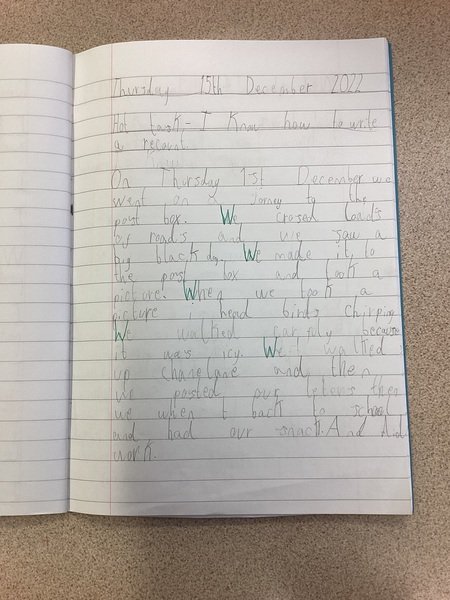 Thursday 15th December 2022
Hot task - I know how to write
a recount.
On Thursday 1st December we
went on a jorney to the
post box. We crosed load's
of roads and we saw a
big black dog. We made it to
the post box and took a
picture. When we took a
picture i head birds chirping
We walked carfly because
it was icy. We walked
up chanelane and then
we posted our leters then
we when t back to school
and had our snack. And did
work.